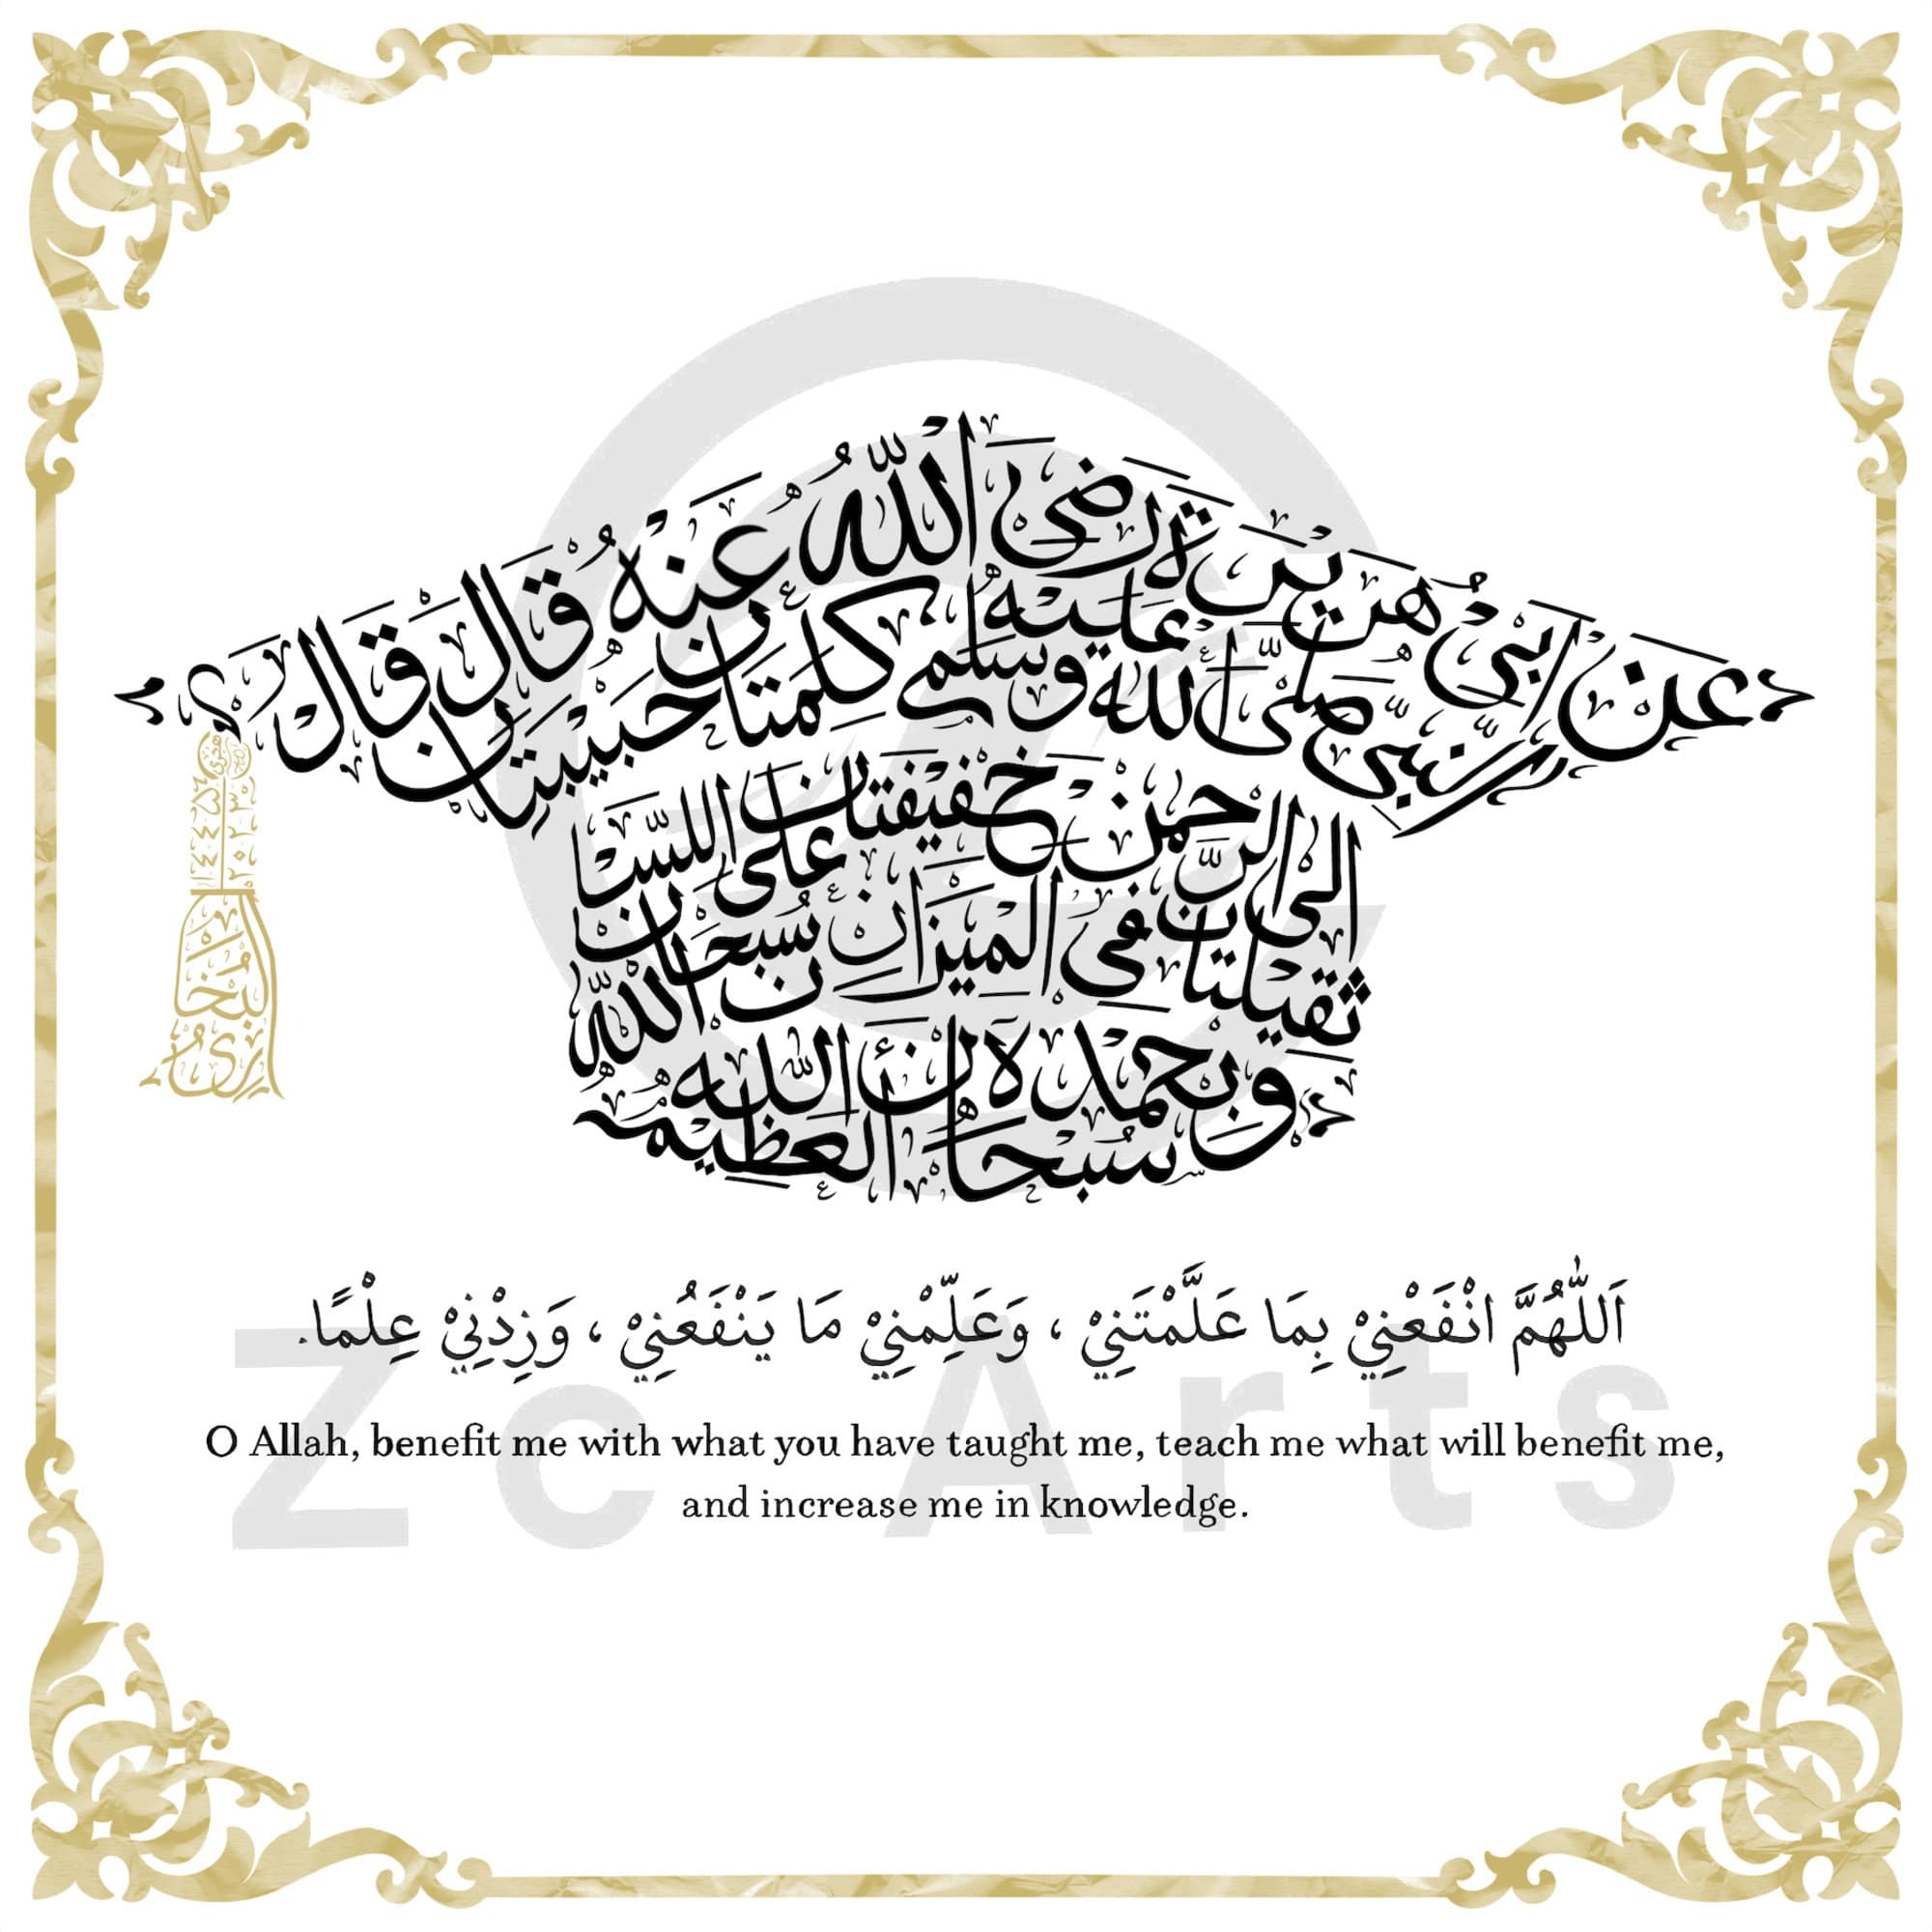 عَنْ اَبِىْ هُرَيْرَةَ رَضِىَ اللّٰهُ عَنْهُ قَالَ قَالَ
النَّبِىُّ صَلَّى اللّٰهُ عَلَيْهِ وَسَلَّمَ كَلِمَتَانِ حَبِيْبَتَانِ
اِلَى الرَّحْمٰنِ خَفِيْفَتَانِ عَلَى اللِّسَانِ
ثَقِيْلَتَانِ فِى الْمِيْزَانِ سُبْحَانَ اللّٰهِ
وَبِحَمْدِهٖ سُبْحَانَ اللّٰهِ الْعَظِيْمِ
١٤٤٥ ٢٠٢٣
الْبُخَارِىُّ
اَللّٰهُمَّ انْفَعْنِيْ بِمَا عَلَّمْتَنِيْ ، وَعَلِّمْنِيْ مَا يَنْفَعُنِيْ ، وَزِدْنِيْ عِلْمًا.
O Allah, benefit me with what you have taught me, teach me what will benefit me,
and increase me in knowledge.
Zc Arts